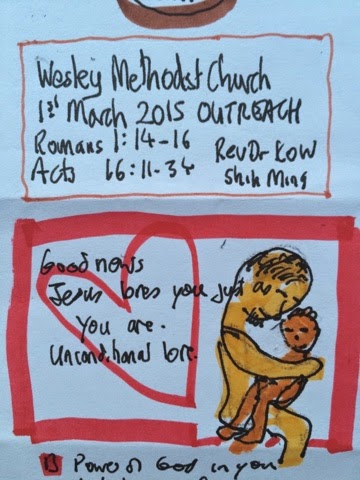 Wesley Methodist Church
1st March 2015 OUTREACH
Romans 1:14-16
Acts 16:11-34
Rev Dr Kow
Shih Ming
Good news
Jesus loves you just as
you are.
Unconditional love.
B Power of God in you